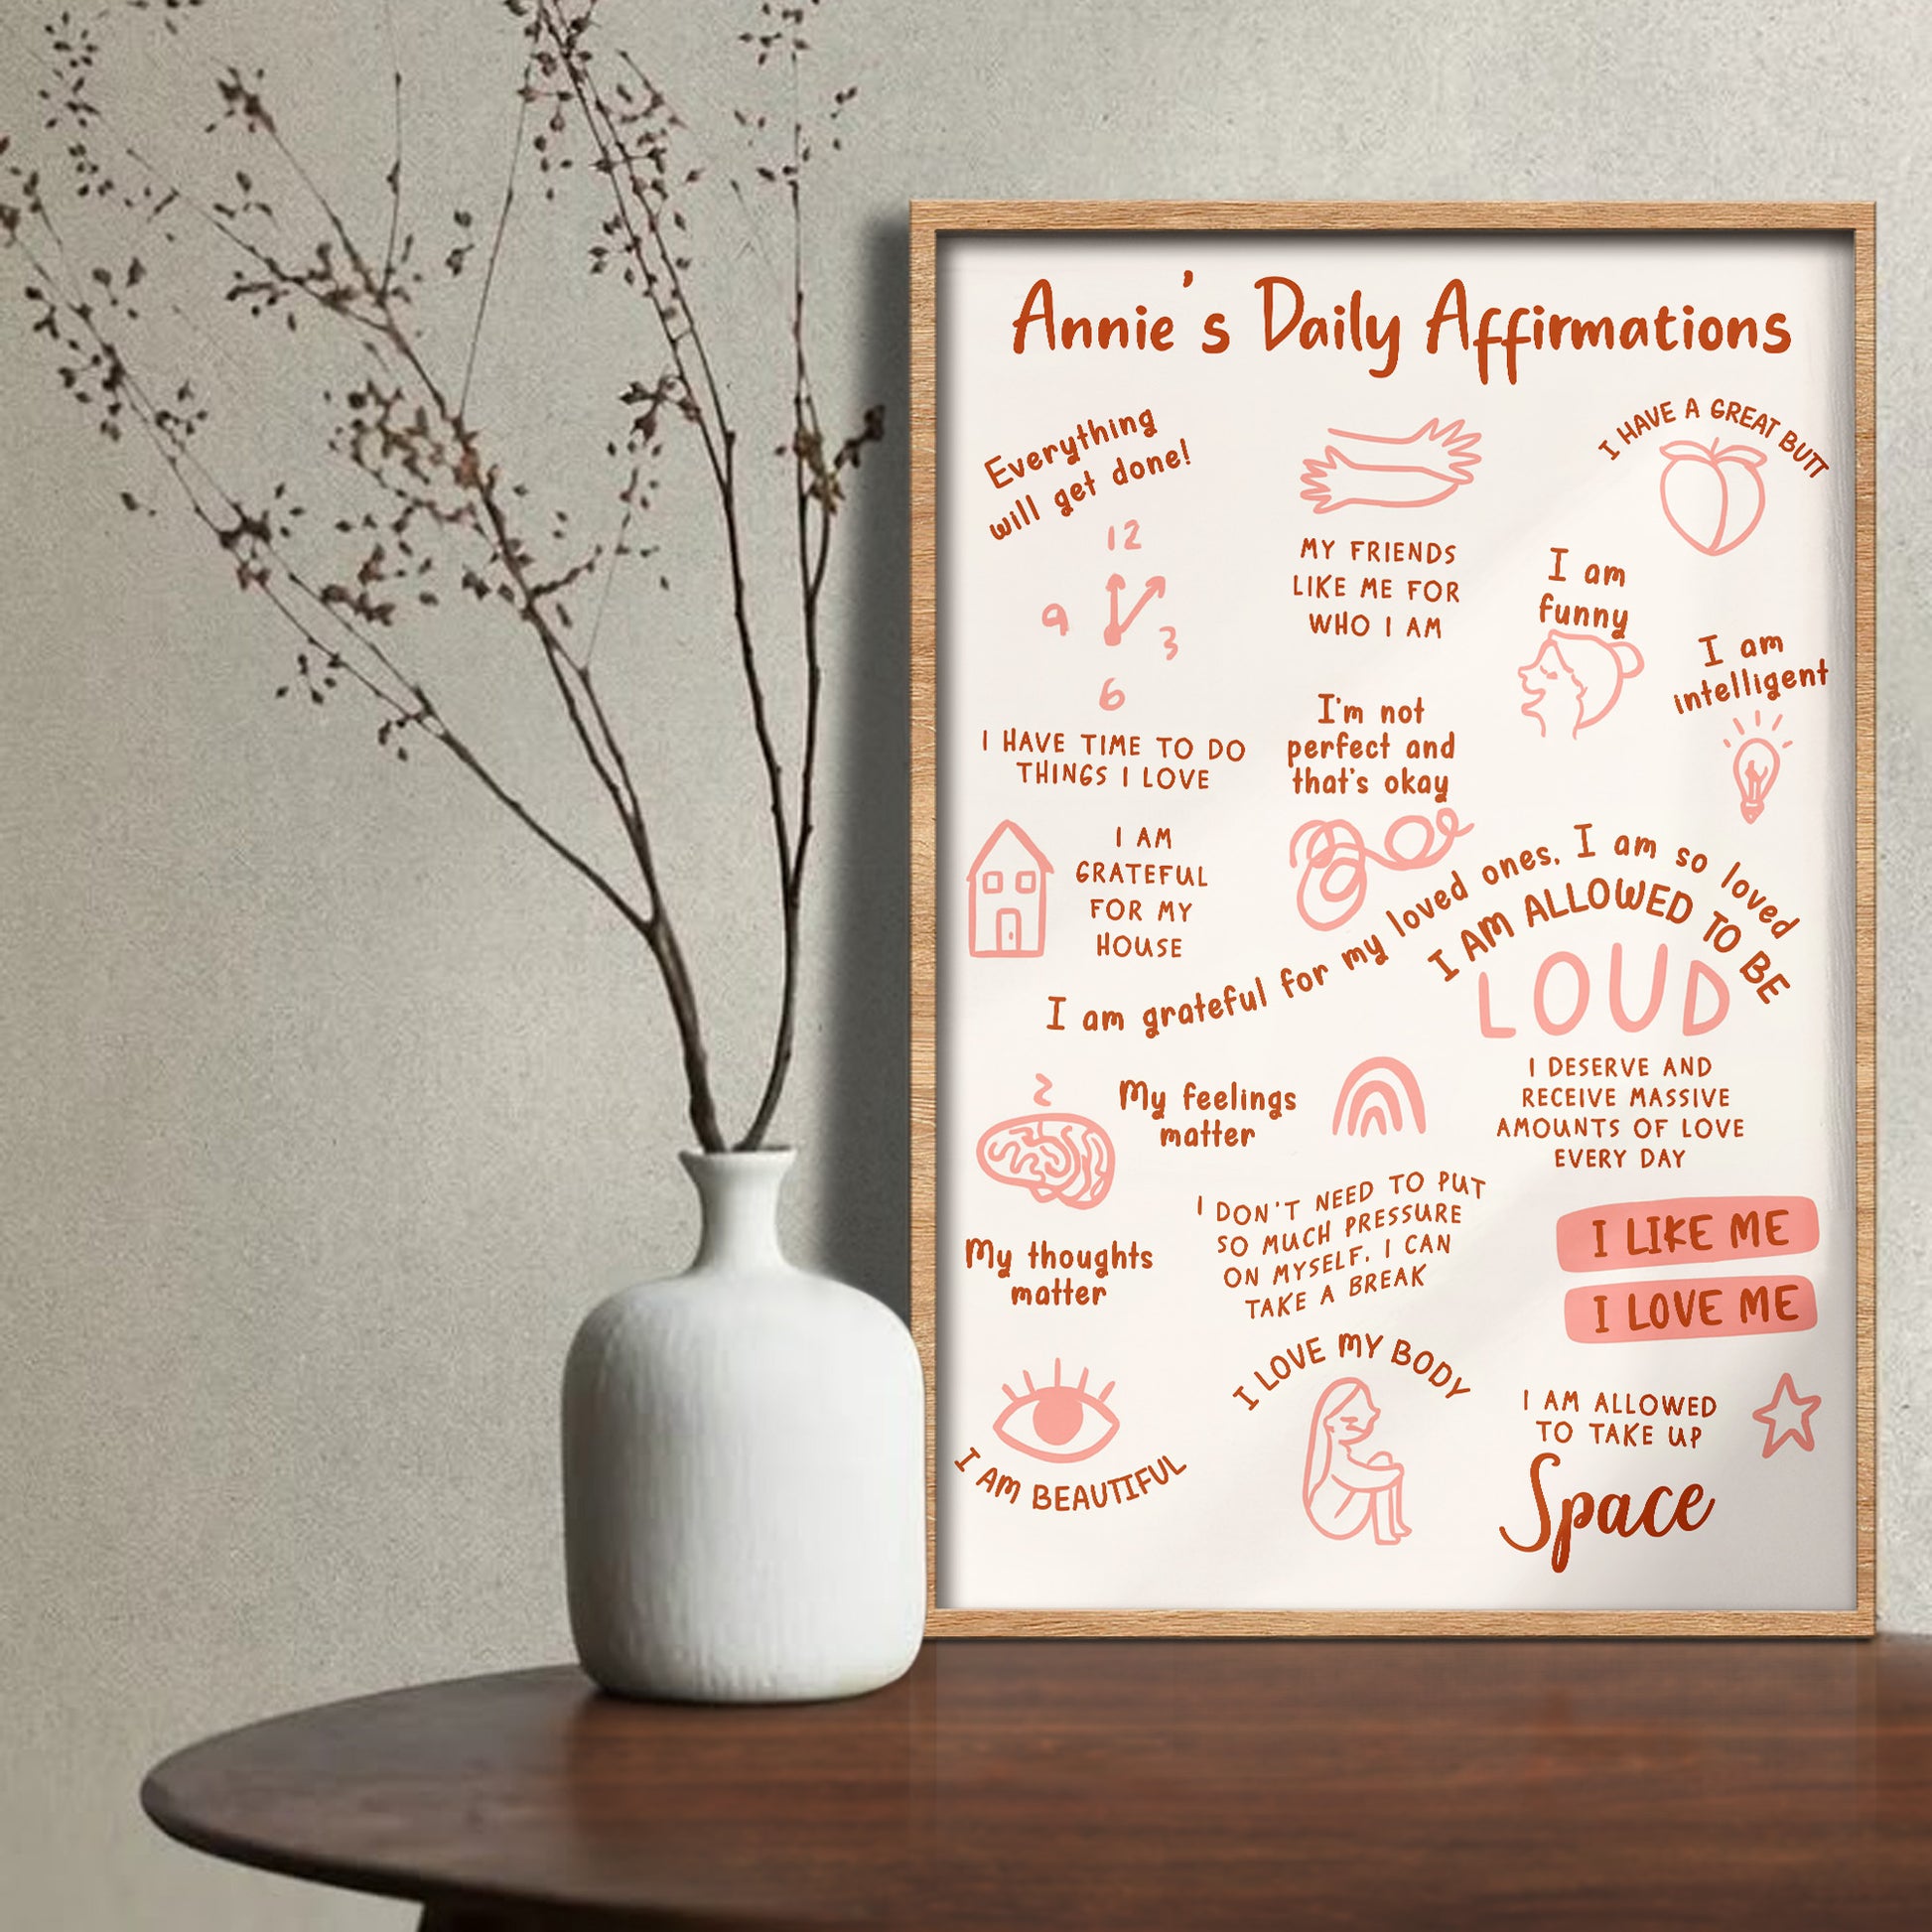 Annie's Daily Affirmations
Everything
will get done!
12
9
3
6
I HAVE TIME TO DO
THINGS I LOVE
MY FRIENDS
LIKE ME FOR
WHO I AM
I HAVE A GREAT BUTT
I am
funny
I am
intelligent
I'm not
perfect and
that's okay
I AM
GRATEFUL
FOR MY
HOUSE
I am grateful for my loved ones. I am so loved
I AM ALLOWED TO BE
LOUD
My feelings
matter
I DESERVE AND
RECEIVE MASSIVE
AMOUNTS OF LOVE
EVERY DAY
My thoughts
matter
I DON'T NEED TO PUT
SO MUCH PRESSURE
ON MYSELF. I CAN
TAKE A BREAK
I LIKE ME
I LOVE ME
I AM BEAUTIFUL
I LOVE MY BODY
I AM ALLOWED
TO TAKE UP
Space